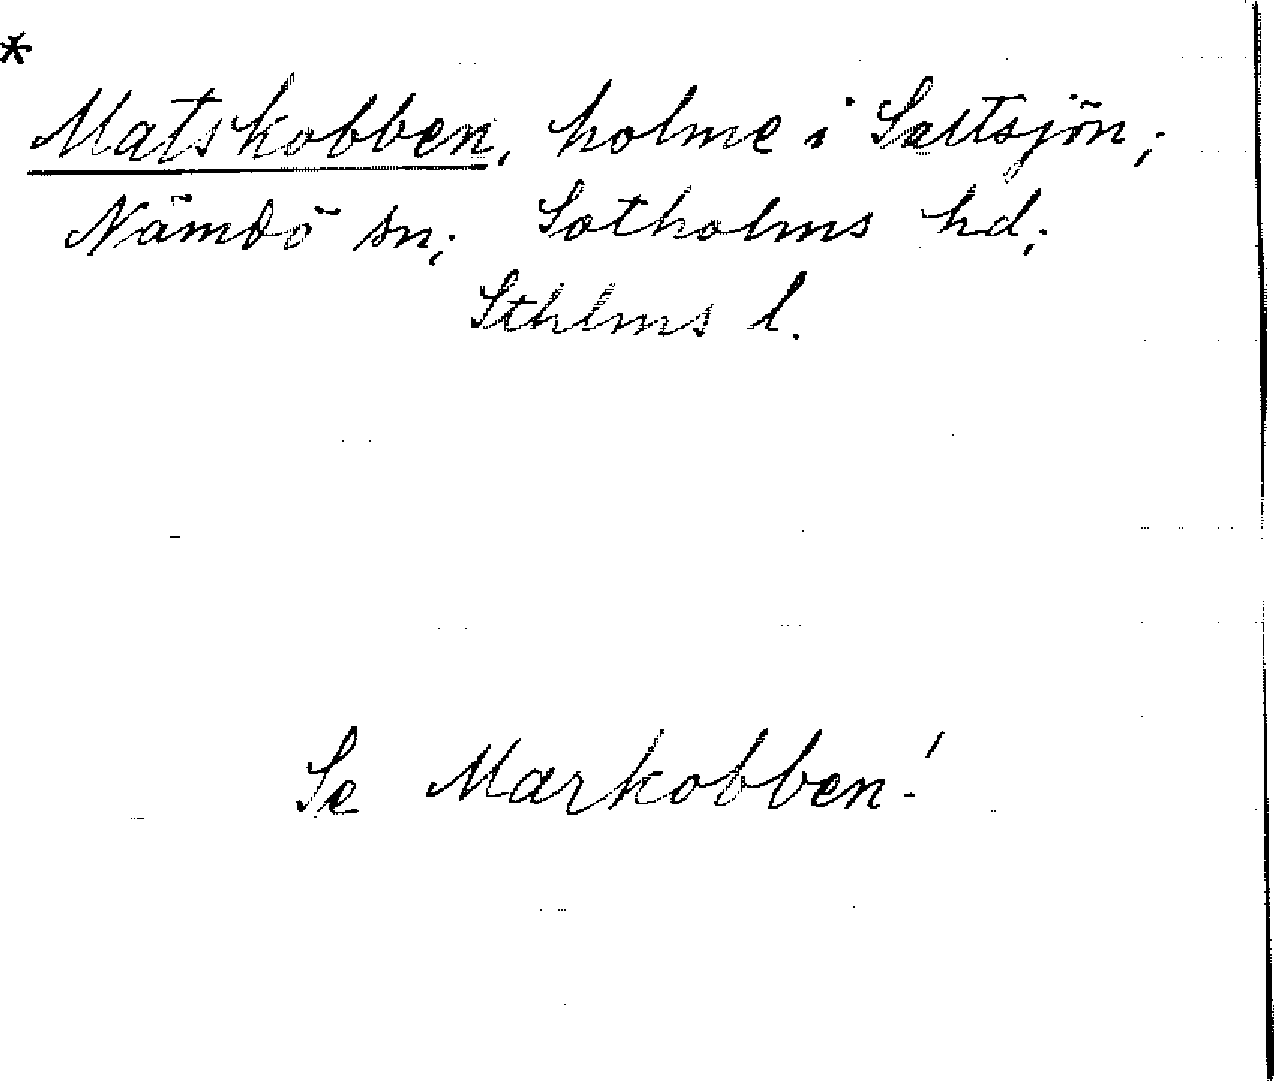 *
Matskobben, holme i Saltsjön;
Nämdö sn; Sotholms hd;
Sthlms l.
Se Markobben!